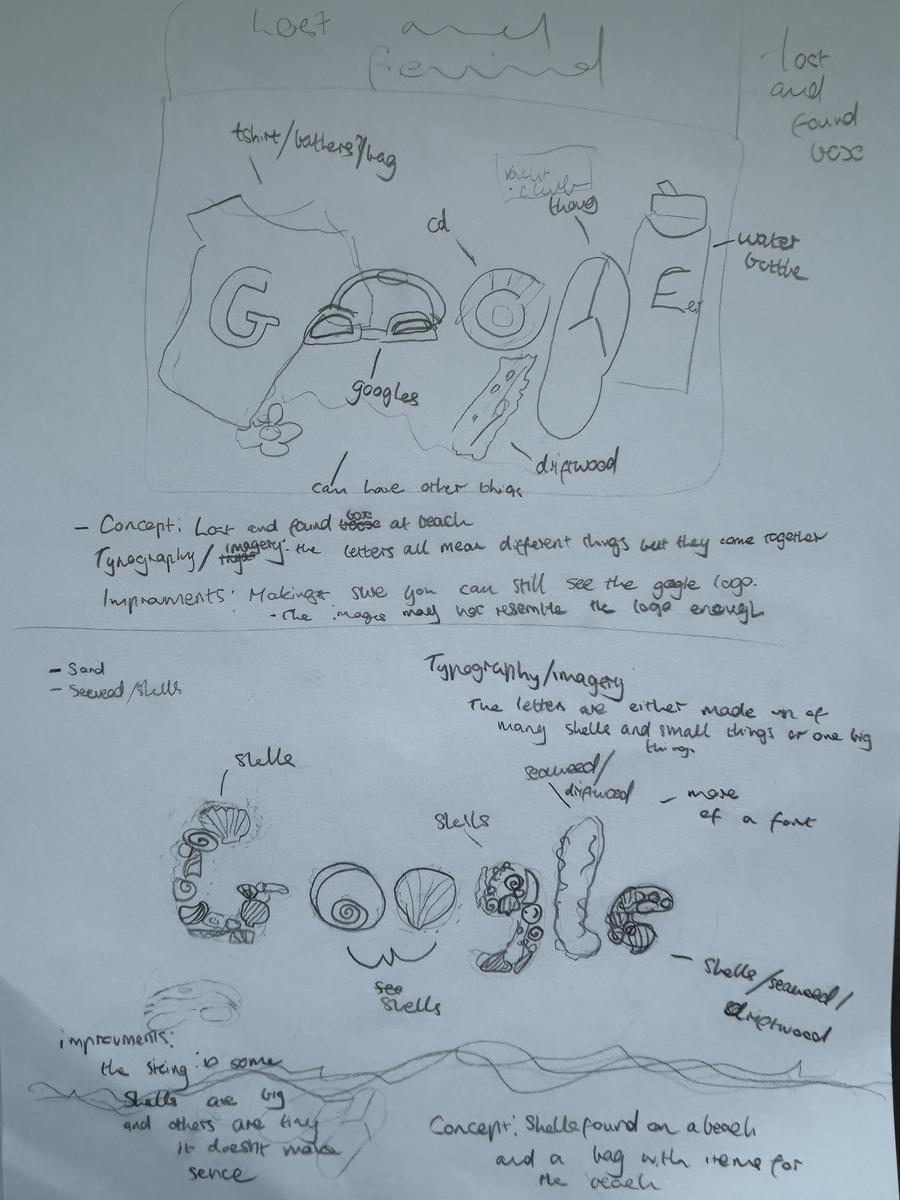 Lost and
found
- lost
and
found
box
tshirt/bathers?/bag
yacht
club
thong
cd
water
bottle
G
E
googles
driftwood
can have other things
- Concept: Lost and found box at beach
Typography/imagery: the letters all mean different things but they come together
Improvments: Making sure you can still see the google logo.
- The images may not resemble the logo enough
- Sand
- Seeweed/shells
Typography/imagery
The letters are either made up of
many shells and small things or one big
things.
shells
seaweed/
driftwood
- more
of a font
shells
G g l e
shells
- shells/seaweed/
driftwood
improvments:
the sizing is some
Shells are big
and others are tiny
it doesn't make
sence
Concept: Shells found on a beach
and a bag with items for
the beach